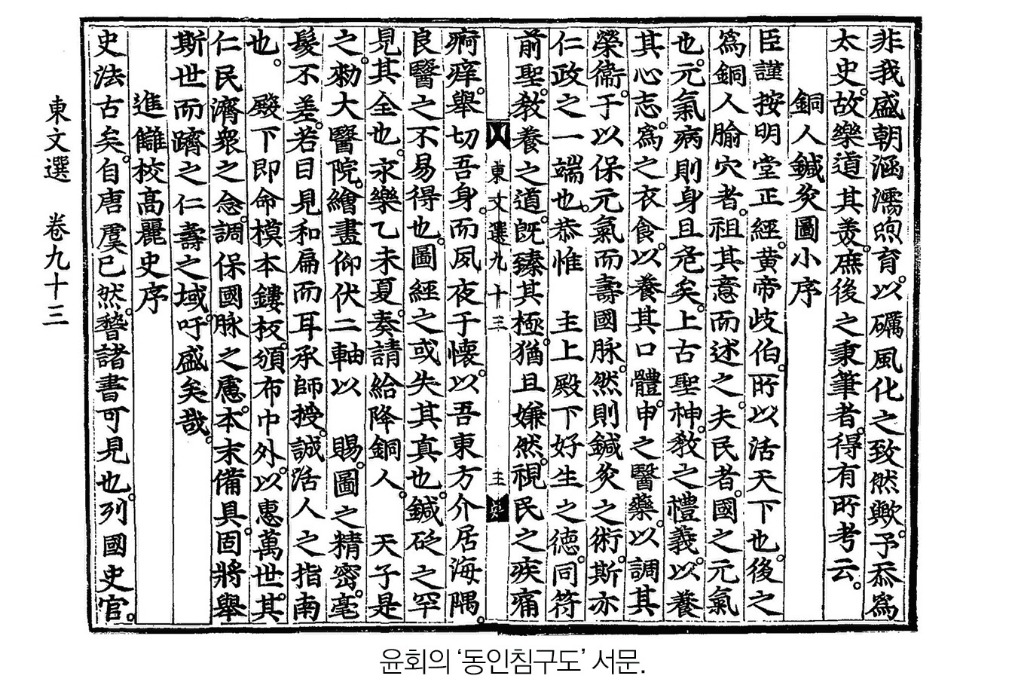 非我盛朝涵濡煦育。以礪風化之致然歟。予忝爲
太史。故樂道其美。庶後之秉筆者。得有所考云。
銅人鍼灸圖小序
臣謹按明堂正經。黃帝歧伯。所以活天下也。後之
爲銅人腧穴者。祖其意而述之。夫民者。國之元氣
也。元氣病則身且危矣。上古聖神。敎之禮義。以養
其心志。爲之衣食。以養其口體。申之醫藥。以調其
榮衛。于以保元氣而壽國脉。然則鍼灸之術。斯亦
仁政之一端也。恭惟 主上殿下好生之德。同符
前聖。敎養之道。旣臻其極。猶且嫌然。視民之疾痛
東文選九十三
痾痒。舉切吾身。而夙夜于懷。以吾東方介居海隅。
良醫之不易得也。圖經之或失其真也。鍼砭之罕
見其全也。永樂乙未夏。奏請給降銅人。 天子是
之。勑大醫院。繪畫仰伏二軸以 賜。圖之精密。毫
髮不差。若日見和扁而耳承師授。誠活人之指南
也。 殿下即命模本鏤板。頒布中外。以惠萬世。其
仁民濟衆之念。調保國脉之慮。本末備具。固將舉
斯世而躋之仁壽之域。吁盛矣哉。
進讎校高麗史序
史法古矣。自唐虞已然。稽諸書可見也。列國史官。
東文選 卷九十三
윤회의 ‘동인침구도’ 서문.